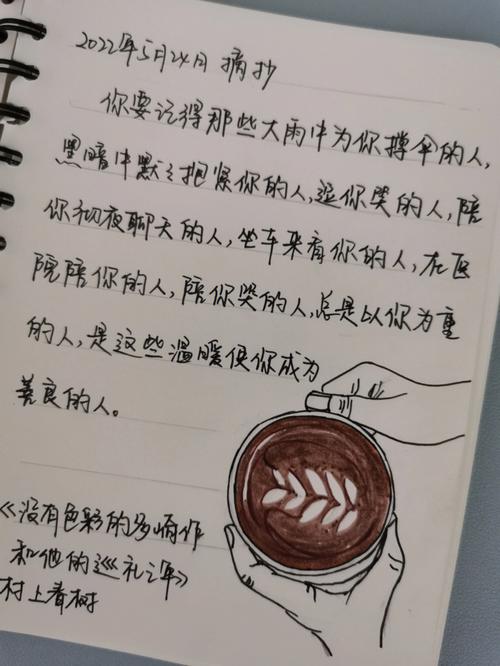 2022年5月24日 摘抄
你要记得那些大雨中为你撑伞的人,
黑暗中默々抱紧你的人,逗你笑的人,陪
你彻夜聊天的人,坐车来看你的人,在医
院陪你的人,陪你哭的人,总是以你为重
的人,是这些温暖使你成为
善良的人。
《没有色彩的多崎作
和他的巡礼之年》
村上春树